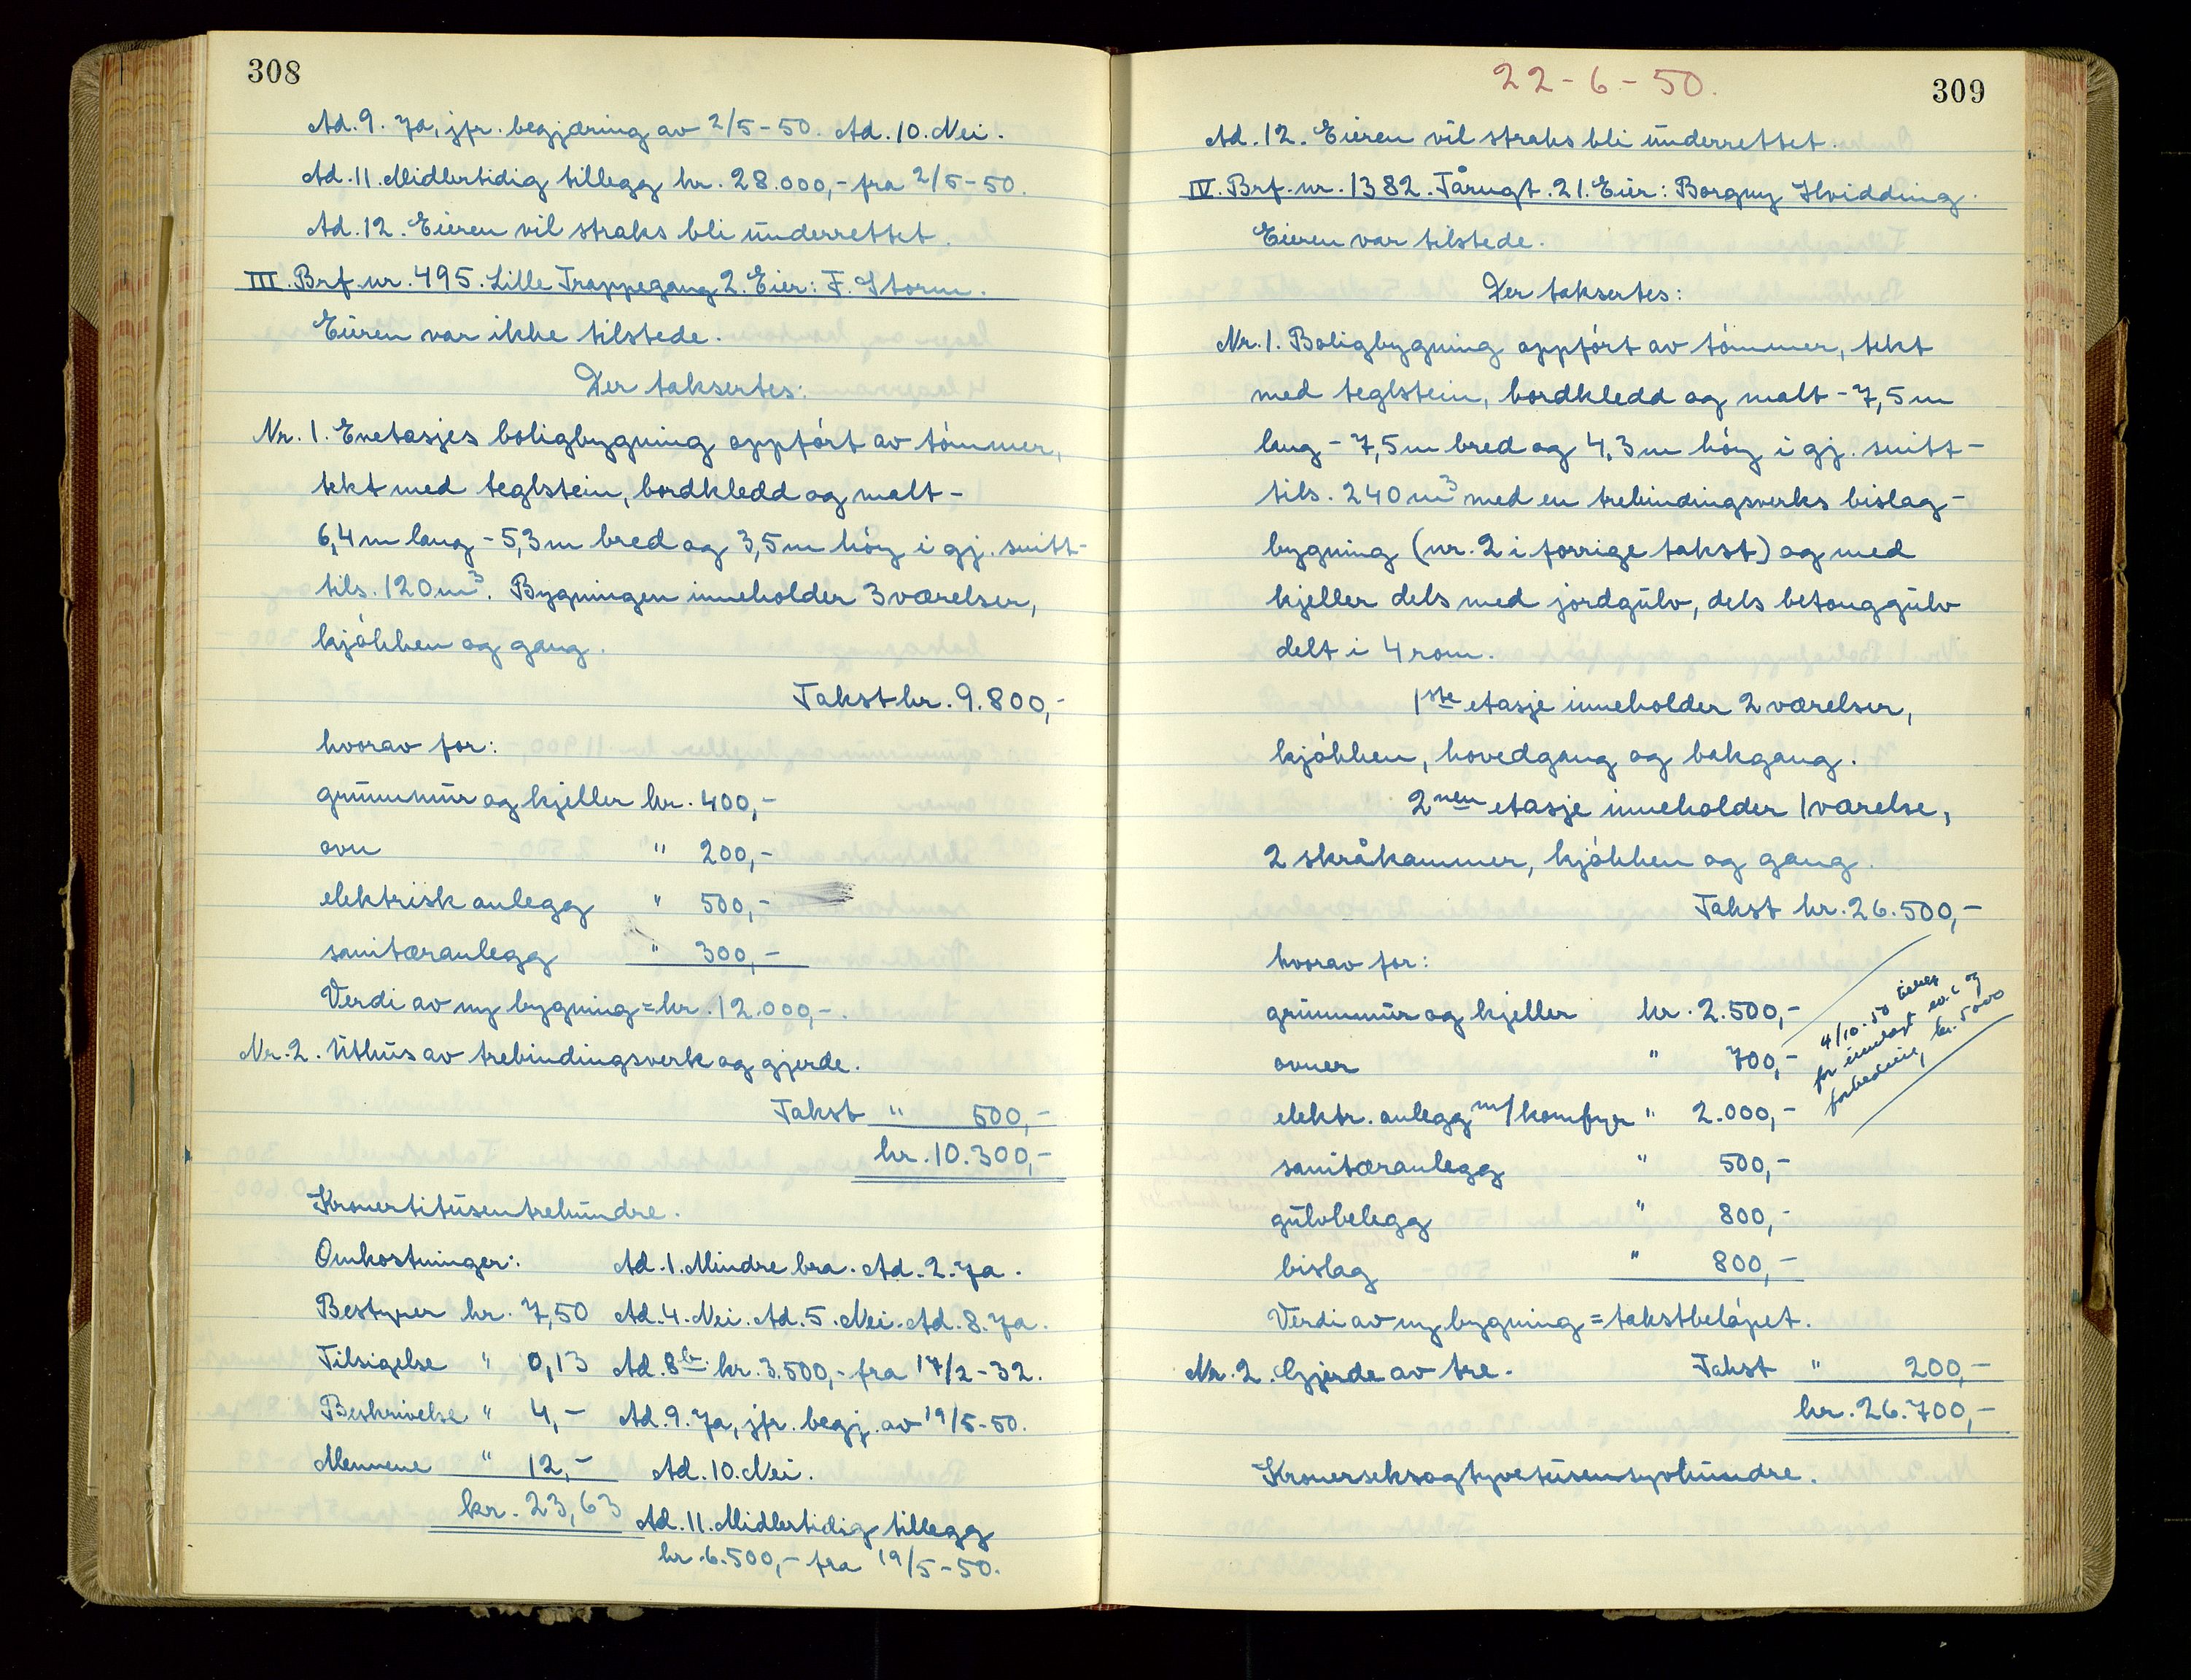 308
Ad. 9. Ja, jfr. begjæring av 2/5-50. Ad. 10. Nei.
Ad. 11. Midlertidig tillegg kr. 28.000,- fra 2/5-50.
Ad. 12. Eieren vil straks bli underrettet.
III. Brf. nr. 495. Lille Trappegang 2. Eier: F. Storm.
Eieren var ikke tilstede.
Der taksertes:
Nr. 1. Enetasjes boligbygning oppført av tømmer,
tekt med teglstein, bordkledd og malt -
6,4 m lang - 5,3 m bred og 3,5 m høy i gj. snitt -
tils. 120 m³. Bygningen inneholder 3 værelser,
kjøkken og gang.
Takst kr. 9.800,-
hvorav for:
grunnmur og kjeller kr. 400,-
ovn " 200,-
elektrisk anlegg " 500,-
sanitæranlegg " 300,-
Verdi av ny bygning = kr. 12.000,-.
Nr. 2. Uthus av trebindingsverk og gjerde.
Takst " 500,-
kr. 10.300,-
Kronertitusentrehundre.
Omkostninger: Ad. 1. Mindre bra. Ad. 2. Ja.
Bestyrer kr. 7,50 Ad. 4. Nei. Ad. 5. Nei. Ad. 8. Ja.
Tilsigelse " 0,13 Ad. 8b. kr. 3.500,- fra 17/2-32.
Beskrivelse " 4,- Ad. 9. Ja, jfr. begj. av 19/5-50.
Mennene " 12,- Ad. 10. Nei.
kr. 23,63 Ad. 11. Midlertidig tillegg
kr. 6.500,- fra 19/5-50.
22-6-50.
309
Ad. 12. Eieren vil straks bli underrettet.
IV. Brf. nr. 1382. Tårngt. 21. Eier: Borgny Hvidding.
Eieren var tilstede.
Der taksertes:
Nr. 1. Boligbygning oppført av tømmer, tekt
med teglstein, bordkledd og malt - 7,5 m
lang - 7,5 m bred og 4,3 m høy i gj. snitt -
tils. 240 m³ med en trebindingsverks bislag-
bygning (nr. 2 i forrige takst) og med
kjeller dels med jordgulv, dels betonggulv
delt i 4 rom.
1ste etasje inneholder 2 værelser,
kjøkken, hovedgang og bakgang.
2nen etasje inneholder 1 værelse,
2 skråkammer, kjøkken og gang.
Takst kr. 26.500,-
hvorav for:
grunnmur og kjeller kr. 2.500,-
ovner " 700,-
elektr. anlegg m/komfyr " 2.000,-
4/10-50 tillegg
for innlagt w.c. og
forbedring, kr. 5000
sanitæranlegg " 500,-
gulvbelegg " 800,-
bislag " 800,-
Verdi av ny bygning = takstbeløpet.
Nr. 2. Gjerde av tre. Takst " 200,-
kr. 26.700,-
Kronerseksogtyvetusensyvhundre.